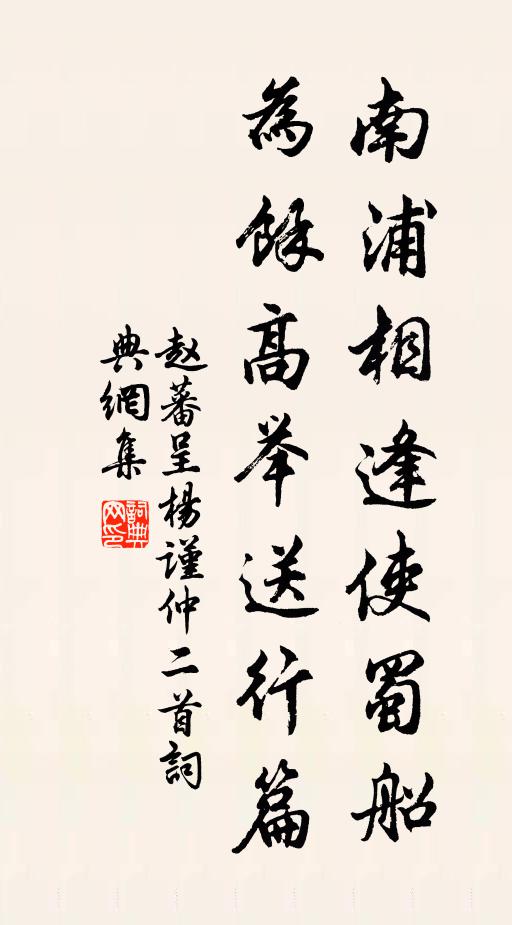 南浦相逢使蜀船
為餘高举送行篇
赵蕃呈楊谨仲二首詞
典網集
詞典网印